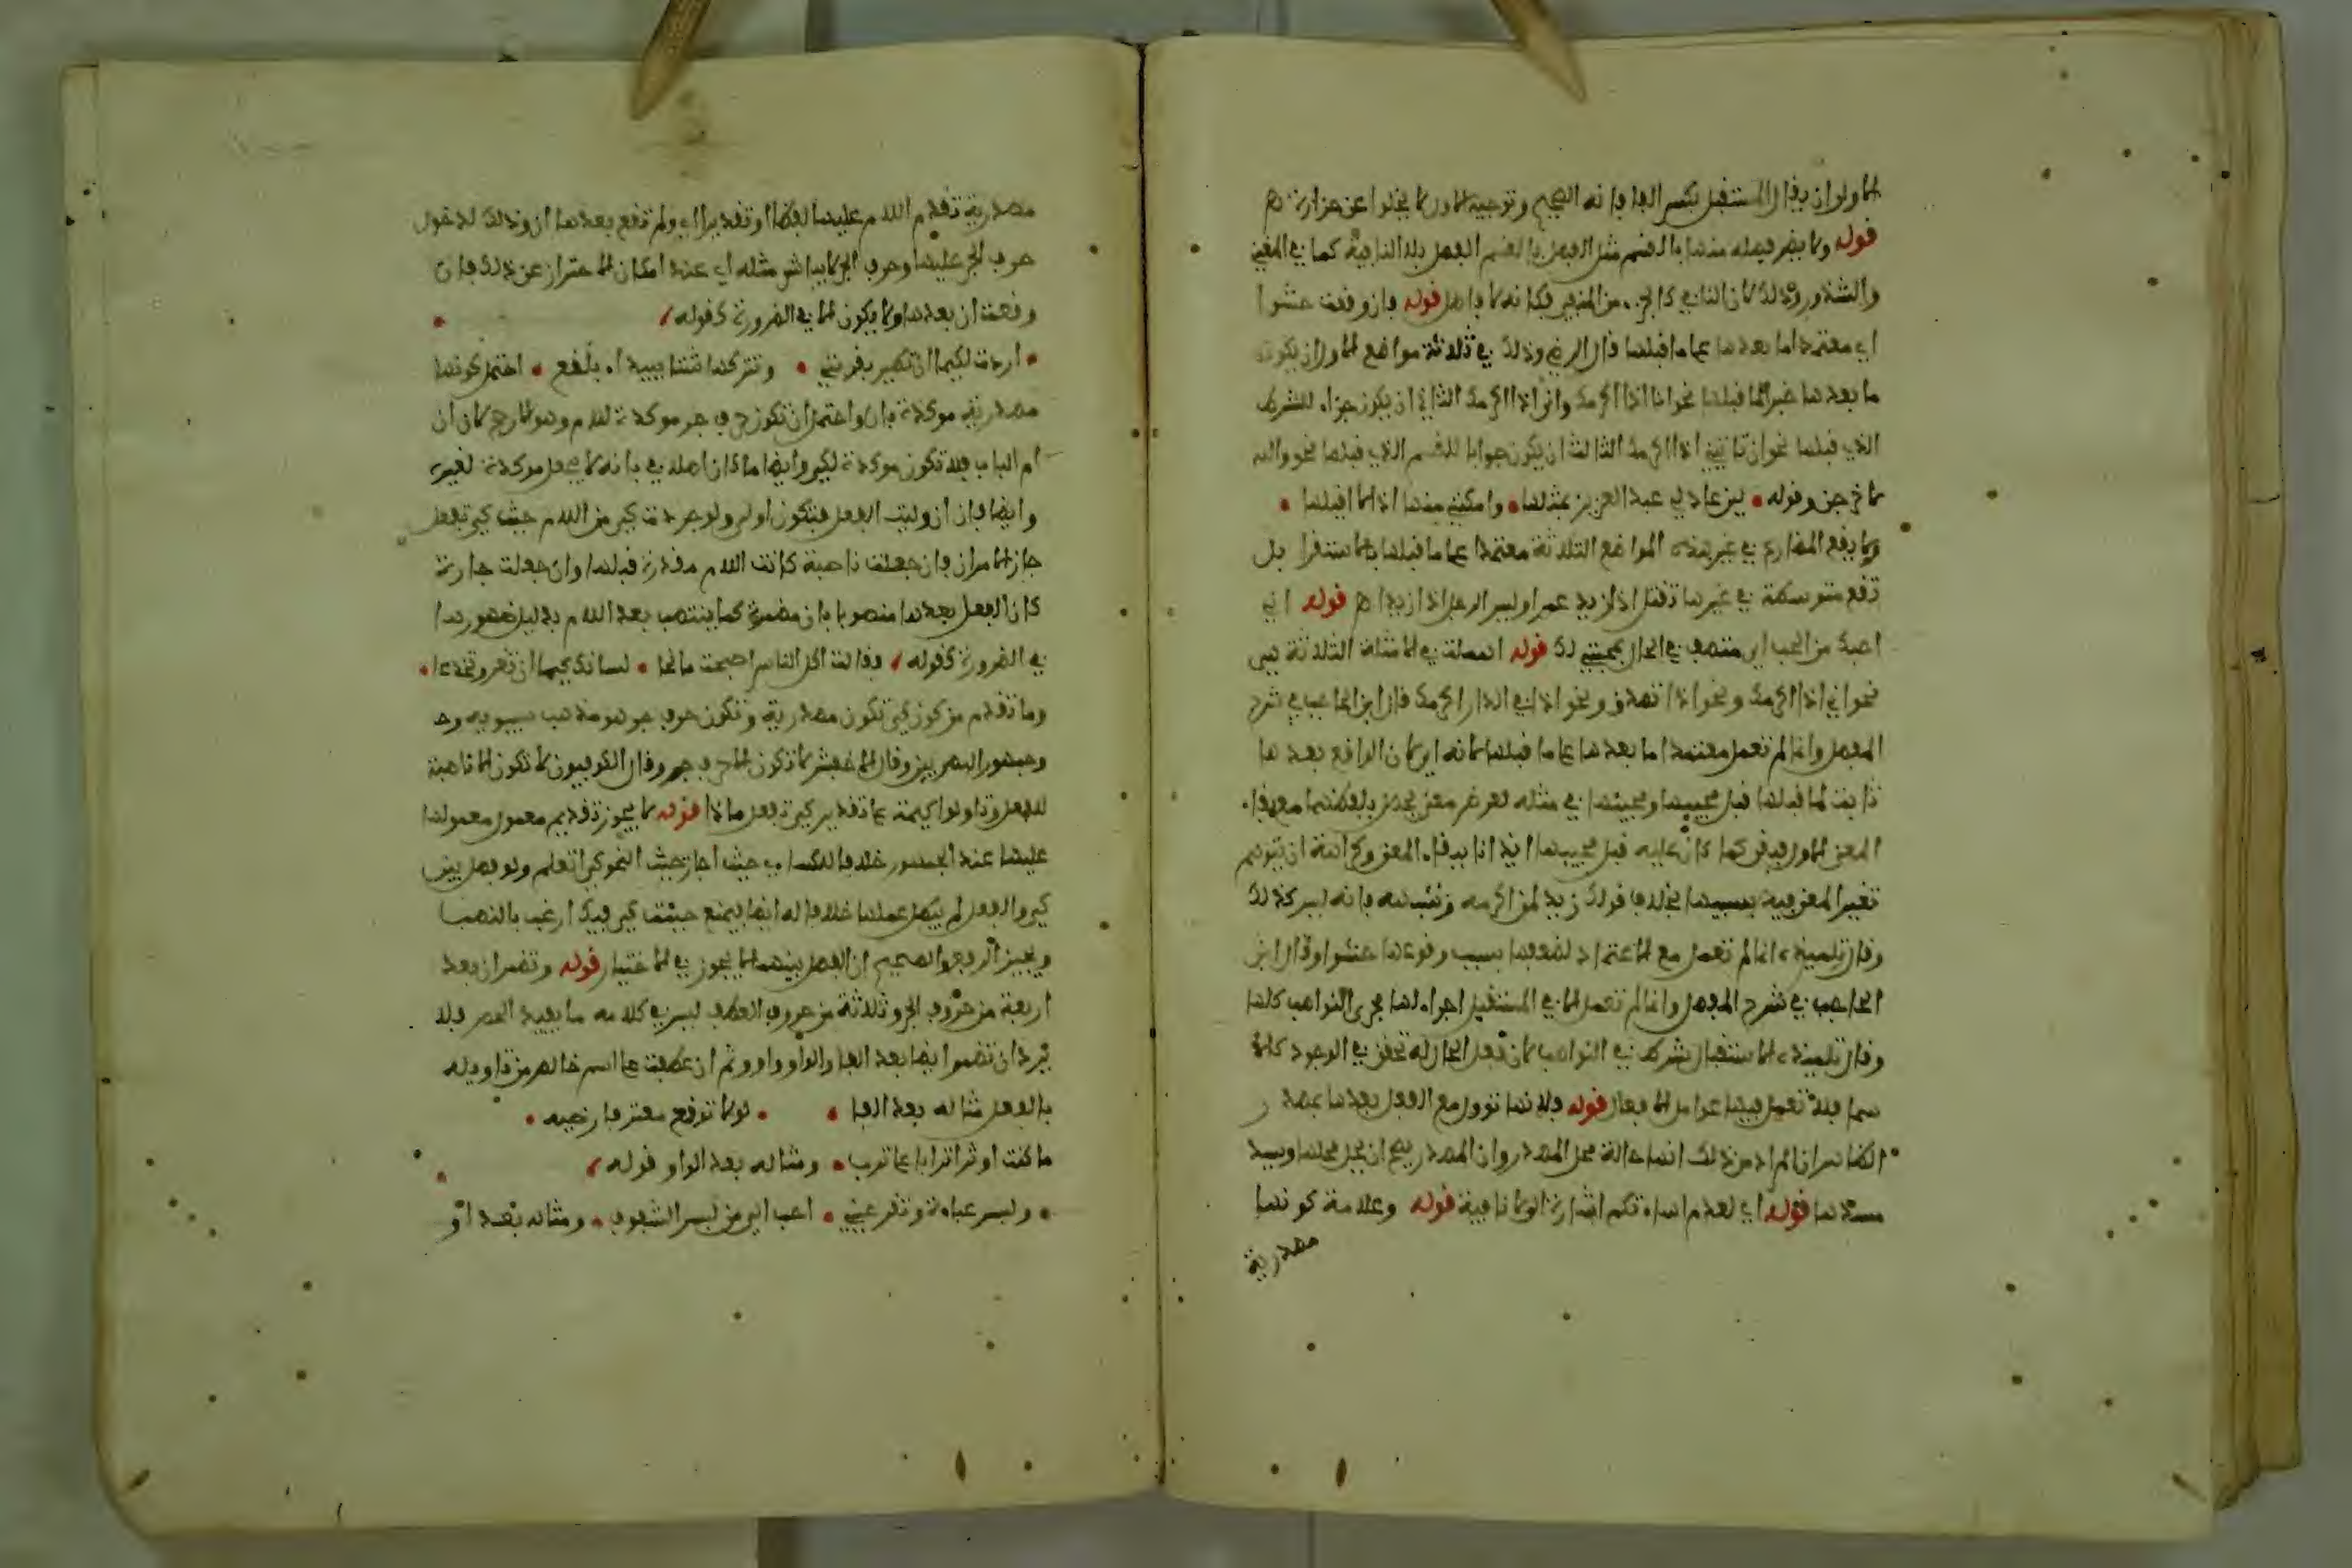 الاولى ان يقال المستقبل بكسر الباء فانه الصحيح وتوجيه الاول لا يخلوا عن حزازة اه
قوله ولا يضر فصله منها بالقسم مثل الفصل بالقسم الفصل بلا النافية كما في المغني
والشذور وذلك لان النافي كالجزء من المنفي فكانه لا فاصل قوله فان وقعت حشوا
اي معتمدا ما بعدها على ما قبلها قال الرضي وذلك في ثلاثة مواضع الاول ان يكون
ما بعدها خبرا لما قبلها نحو انا اذا اكرمك واني اذا اكرمك الثاني ان يكون جزاء للشرط
الذي قبلها نحو ان تاتيني اذا اكرمك الثالث ان يكون جوابا للقسم الذي قبلها نحو والله
لاخرجن وقوله • لين عاد لي عبد العزيز بمثلها • وامكنني منها اذا لا اقيلها •
ولا يقع المضارع في غير هذه المواضع الثلاثة معتمدا على ما قبلها بالاستقرا بل
تقع متوسطة في غيرها تقتل اذا زيد عمرا وليس الرجل اذا زيدا اه قوله اني
احبك من الحب اي متصف في الحال بمحبتي لك قوله اهملت في الامثلة الثلاثة هي
نحو اني اذا اكرمك ونحو اذا تصدق ونحو اذا في الدار اكرمك قال ابن الحاجب في شرح
المفصل وانما لم تعمل معتمدا ما بعدها على ما قبلها لانه اي لان الواقع بعدها
ثابت لما قبلها قبل مجيبها ومجيئها في مثله لغرض معنى يحصل بلفظها معها
المعنى الاول فبقي كما كان عليه قبل مجيبها ايذانا ببقاء المعنى وكراهة ان يتوهم
تغير المعنى فيه بسببها بخلاف قولك زيد لن اكرمه وشبهه فانه ليس كذلك
وقال تلميذه انما لم تعمل مع الاعتماد لضعفها بسبب وقوعها حشوا وقال ابن
الحاجب في شرح المفصل وانما لم تعمل الا في المستقبل اجراء لها مجرى النواصب كلها
وقال تلميذه الاستقبال شرط في النواصب لان فعل الحال له تحقق في الوجود كالا
سما فلا تعمل فيها عوامل الافعال قوله فلانها توول مع الفعل بعدها بمصدر
الظاهر ان المراد من ذلك انها حالة محل المصدر وان المصدر يصح ان يحل محلها ويسد
مسدها قوله اي لعدم اسا اشارة الى لا نافية قوله وعلامة كونها
مصدرية
مصدرية تقدم اللام عليها لفظا او تقديرا اي ولم تقع بعدها ان وذلك لدخول
حرف الجر عليها وحرف الجر لا يباشر مثله اي عند امكان الاحتراز عن ذلك فان
وقعت ان بعدها ولا يكون الا في الضرورة كقوله
• اردت لكيما ان تطير بقربتي • وتتركها شنا ببيداء بلقع • احتمل كونها
مصدرية موكدة بان واحتمل ان تكون حرف جر موكدة للام وهو الارجح لان ان
ام الباب فلا تكون موكدة لكي وايضا ما كان اصلا في بابه لا يجعل موكدة لغيره
وايضا فان ان وليت الفعل فتكون اولى ولو جردت كي من اللام جيت كي تفعل
جاز الامران فان جعلت ناصبة كانت اللام مقدرة قبلها وان جعلت جارة
كان الفعل بعدها منصوبا بان مضمرة كما ينتصب بعد اللام بدليل ظهورها
في الضرورة كقوله فقالت اكل الناس اصبحت مانحا • لسانك كيما ان تغر وتخدعا •
وما تقدم من كون كي تكون مصدرية وتكون حرف جر هو مذهب سيبويه و
وجمهور البصريين وقال الاخفش لا تكون الا حرف جر وقال الكوفيون لا تكون الا ناصبة
للفعل وتاولوا كيمه على تقدير كي تفعل ماذا قوله لا يجوز تقديم معمول معمولها
عليها عند الجمهور خلافا للكسائي حيث اجاز جيت النحو كي اتعلم ولو فصل بين
كي والفعل لم يبطل عملها خلافا له ايضا فيمنع جيت كي فيك ارغب بالنصب
ويجيز الرفع والصحيح ان الفصل بينهما لا يجوز في الاختيار قوله وتضمر ان بعد
اربعة من حروف الجر وثلاثة من حروف العطف ليس في كلامه ما يفيد الحصر فلا
يرد ان تضمر ايضا بعد الفا والواو واو وثم ان عطفت على اسم خالص من تاويله
بالفعل مثاله بعد الفا • • لولا توقع معتر فارضيه •
ما كنت اوثر اترابا على ترب • ومثاله بعد الواو قوله
• ولبس عباءة وتقر عيني • احب الي من لبس الشفوف • ومثاله بعد او